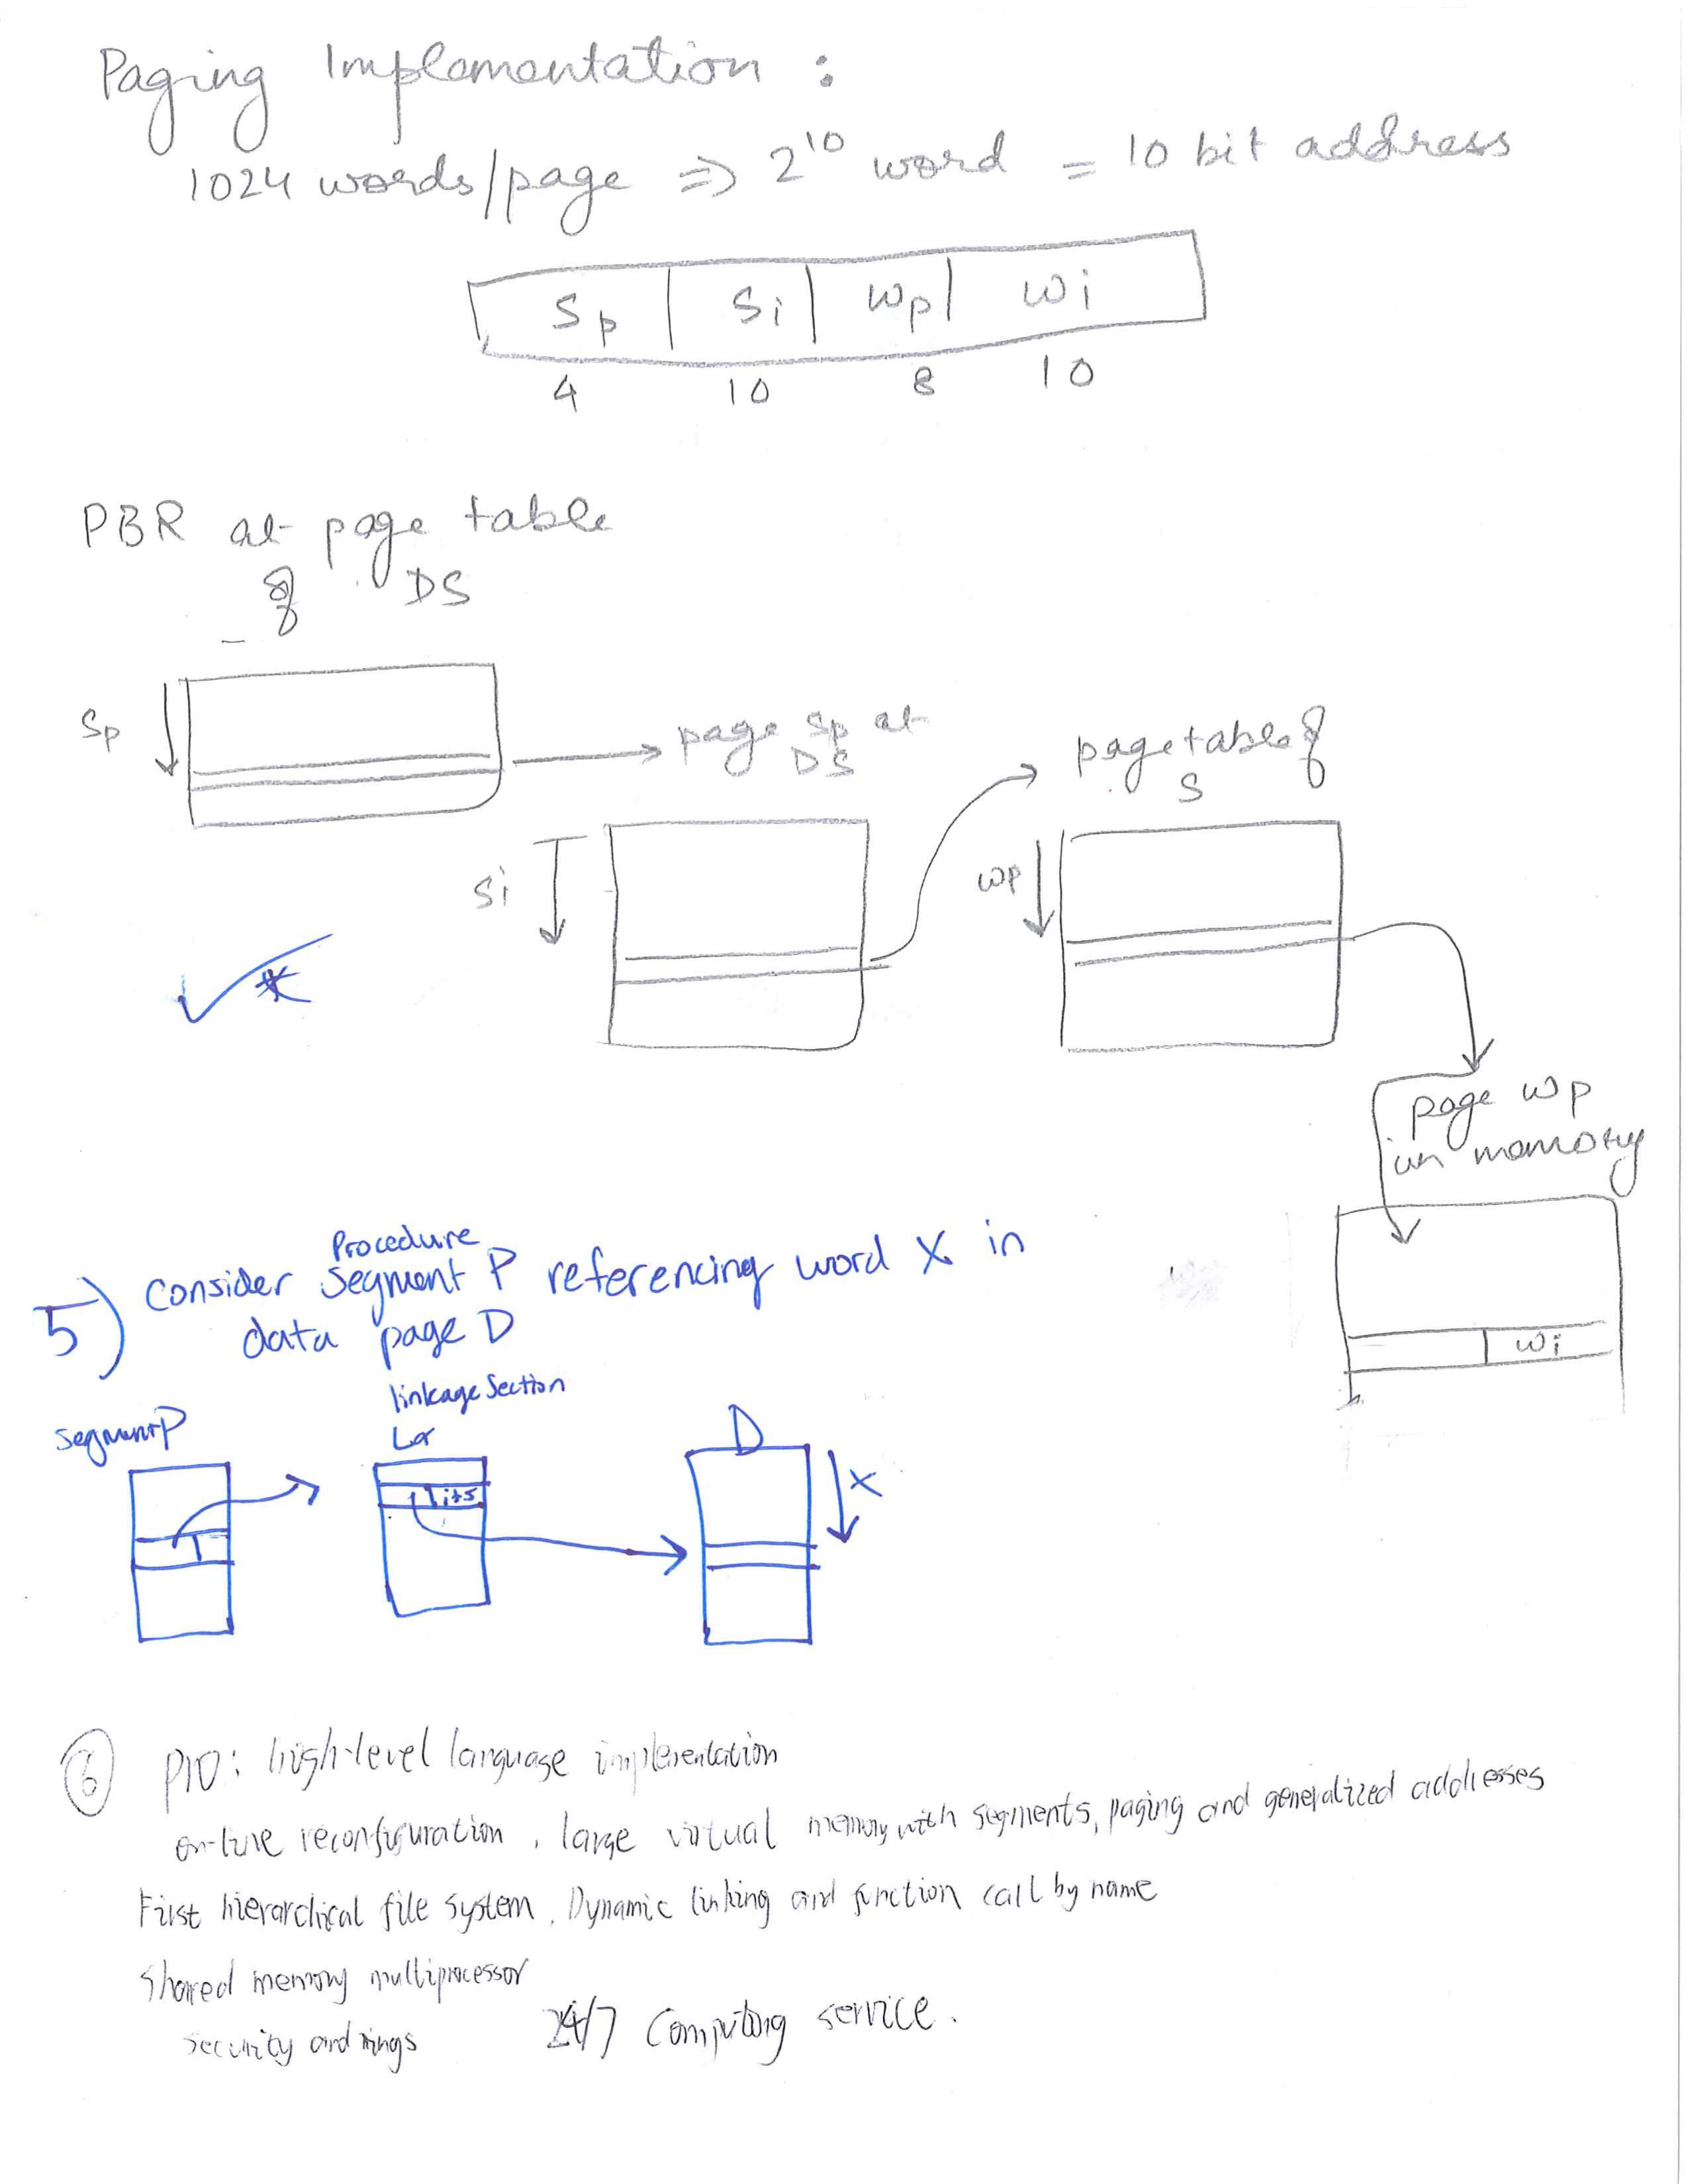 Paging Implementation :
1024 words/page => 2^10 word = 10 bit address
Sp | Si | Wp | Wi
4 10 8 10
PBR at page table
of DS
Sp
page Sp at
DS
page table of
S
Si
Wp
page Wp
in memory
Wi
5) Consider Procedure Segment P referencing word X in
data page D
Segment P
linkage Section
D
its
X
6 P10: high-level language implementation
on-line reconfiguration, large virtual memory with segments, paging and generalized addresses
First hierarchical file system, Dynamic linking and function call by name
Shared memory multiprocessor
security and rings
24/7 Computing service.